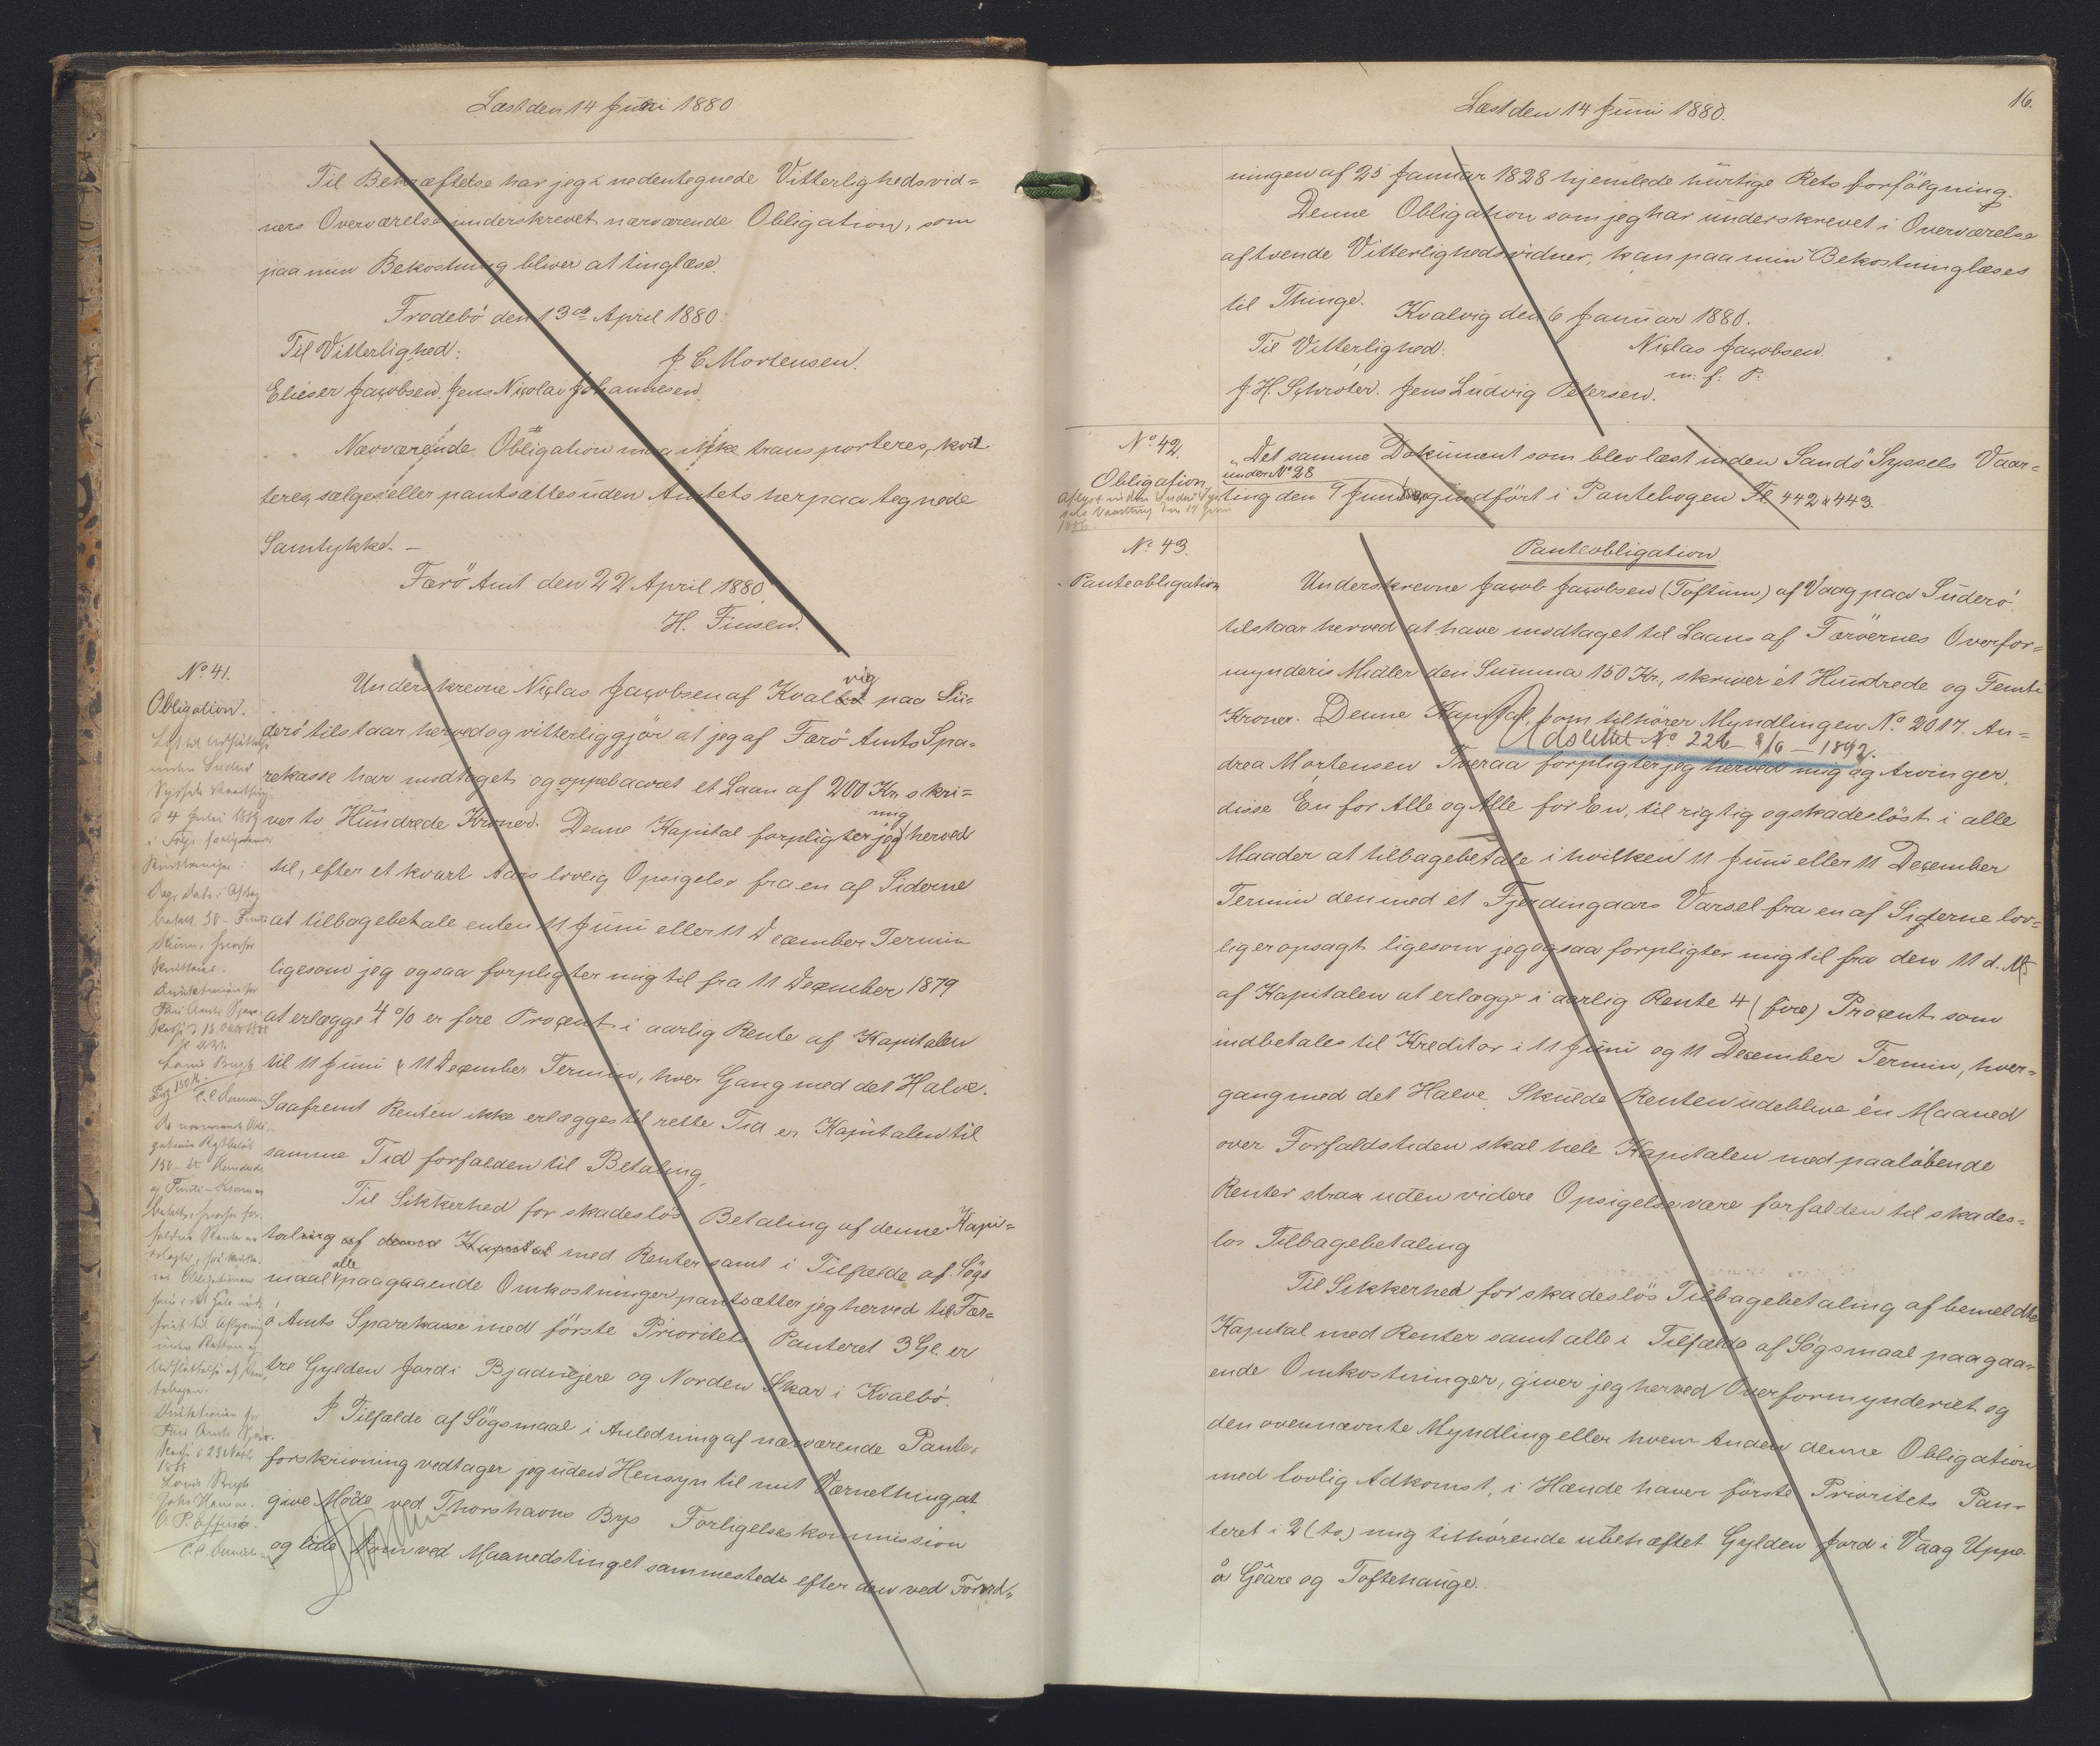 Læst den 14 Juni 1880
Til Bekræftelse har jeg i nedentegnede Vitterlighedsvid=
ners Overværelse underskrevet nærværende Obligation, som
paa min Bekostning bliver at tinglæse.
Frodebö den 13de April 1880.
Til Vitterlighed:
J. C. Mortensen.
Elieser Jacobsen. Jens Nicolai Johannesen.
Nærværende Obligation maa ikke transporteres, kvit
teres, sælges eller pantsættes uden Amtets herpaa tegnede
Samtykke. –
Færö Amt den 22 April 1880.
H. Finsen.
No 41.
Obligation.
Underskrevne Niclas Jacobsen af Kvalvig paa Su=
derö tilstaar herved og vitterliggjör at jeg af Færö Amts Spa=
rekasse har modtaget og oppebaaret et Laan af 200 Kr. skri=
ver to Hundrede Kroner. Denne Kapital forpligter jeg mig herved
til, efter et kvart Aars lovlig Opsigelse fra en af Siderne
at tilbagebetale enten 11 Juni eller 11 December Termin
ligesom jeg ogsaa forpligter mig til fra 11 December 1879
at erlægge 4 % er fire Procent i aarlig Rente af Kapitalen
til 11 Juni & 11 December Termin, hver Gang med det Halve.
Saafremt Renten ikke erlægges til rette Tid er Kapitalen til
samme Tid forfalden til Betaling.
Til Sikkerhed for skadeslös Betaling af denne Kapi=
tal med Renter samt i Tilfælde af Sögs
maal alle paagaaende Omkostninger pantsætter jeg herved til Fær=
ö Amts Sparekasse med förste Prioritets Panteret 3 Gl. er
tre Gylden Jord i Bjadnejere og Norden Skar i Kvalbö.
I Tilfælde af Sögsmaal i Anledning af nærværende Pante=
forskrivning vedtager jeg uden Hensyn til mit Værnething, at
give Möde ved Thorshavns Byes Forligelseskommission
og lide Dom ved Maanedstinget sammesteds efter den ved Forord=
16.
Læst den 14 Juni 1880.
ningen af 25 Januar 1828 hjemlede hurtige Rets forfölgning.
Denne Obligation som jeg har underskrevet i Overværelse
af tvende Vitterlighedsvidner, kan paa min Bekostning læses
til Thinge.
Kvalvig den 6 Januar 1880.
Til Vitterlighed:
Niclas Jacobsen.
m. f. P.
J. H. Schröter. Jens Ludvig Petersen.
No 42.
Obligation
Det samme Dokument som blev læst inden Sandö Syssels Vaar=
under No 28
ting den 9 Juni og indfört i Pantebogen Fl 442 & 443.
No 43.
Panteobligation
Panteobligation
Underskrevne Jacob Jacobsen (Toftum) af Vaag paa Suderö
tilstaar herved at have modtaget til Laans af Færöernes Overfor=
mynderis Midler den Summa 150 Kr., skriver ét Hundrede og Femti
Kroner. Denne Kapital, som tilhörer Myndlingen No 2017. An=
Udslettet No 226 – 8/6 – 1892.
drea Mortensen Tveraa forpligter jeg herved mig og Arvinger,
disse En for Alle og Alle for En, til rigtig og skadeslöst i alle
Maader at tilbagebetale i hvilken 11 Juni eller 11 December
Termin den med et Fjerdingaars Varsel fra en af Siderne lov=
lig er opsagt ligesom jeg ogsaa forpligter mig til fra den 11 d. M.
af Kapitalen at erlægge i aarlig Rente 4 (fire) Procent som
indbetales til Kreditor i 11 Juni og 11 December Termin, hver=
gang med det Halve. Skulde Renten udeblive én Maaned
over Forfaldstiden skal hele Kapitalen med paalöbende
Renter strax uden videre Opsigelse være forfalden til skades=
lös Tilbagebetaling
Til Sikkerhed for skadeslös Tilbagebetaling af bemeldte
Kapital med Renter samt alle i Tilfælde af Sögsmaal paagaa=
ende Omkostninger, giver jeg herved Overformynderiet og
den ovennævnte Myndling eller hvem Anden denne Obligation
med lovlig Adkomst, i Hænde haver förste Prioritets Pan=
teret i 2 (to) mig tilhörende ubehæftet Gylden Jord i Vaag Uppe
å Geåre og Toftehauge.